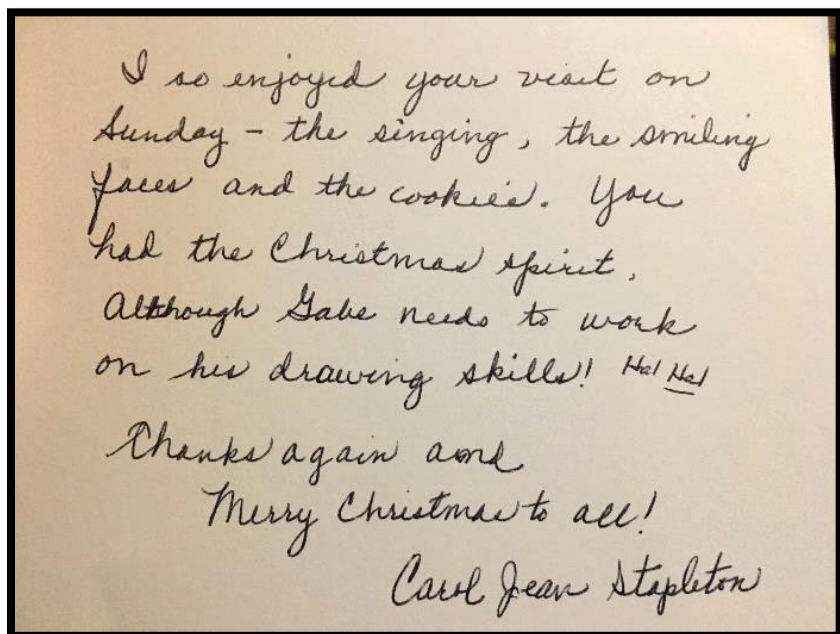 I so enjoyed your visit on
Sunday - the singing, the smiling
faces and the cookies. You
had the Christmas spirit,
Although Gabe needs to work
on his drawing skills! Ha! Ha!
Thanks again and
Merry Christmas to all!
Carol Jean Stapleton